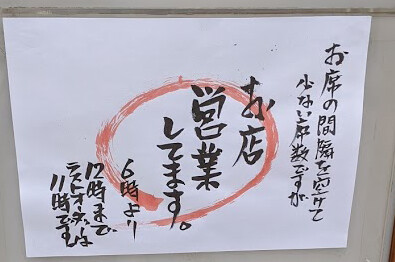 お席の間隣を空けて
少ない席数ですが
お店
営業
してます。
6時より
12時まで
ラストオーダーは
11時です